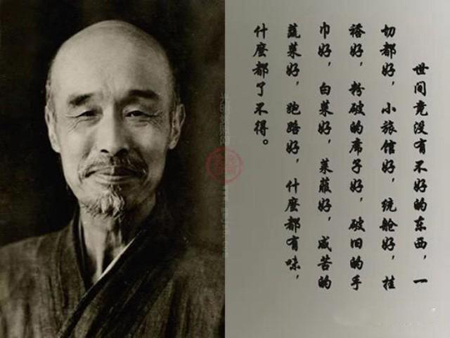 世间竟没有不好的东西，一
切都好，小旅馆好，统舱好，挂
褡好，粉破的席子好，破旧的手
巾好，白菜好，莱菔好，咸苦的
蔬菜好，跑路好，什麼都有味，
什麼都了不得。